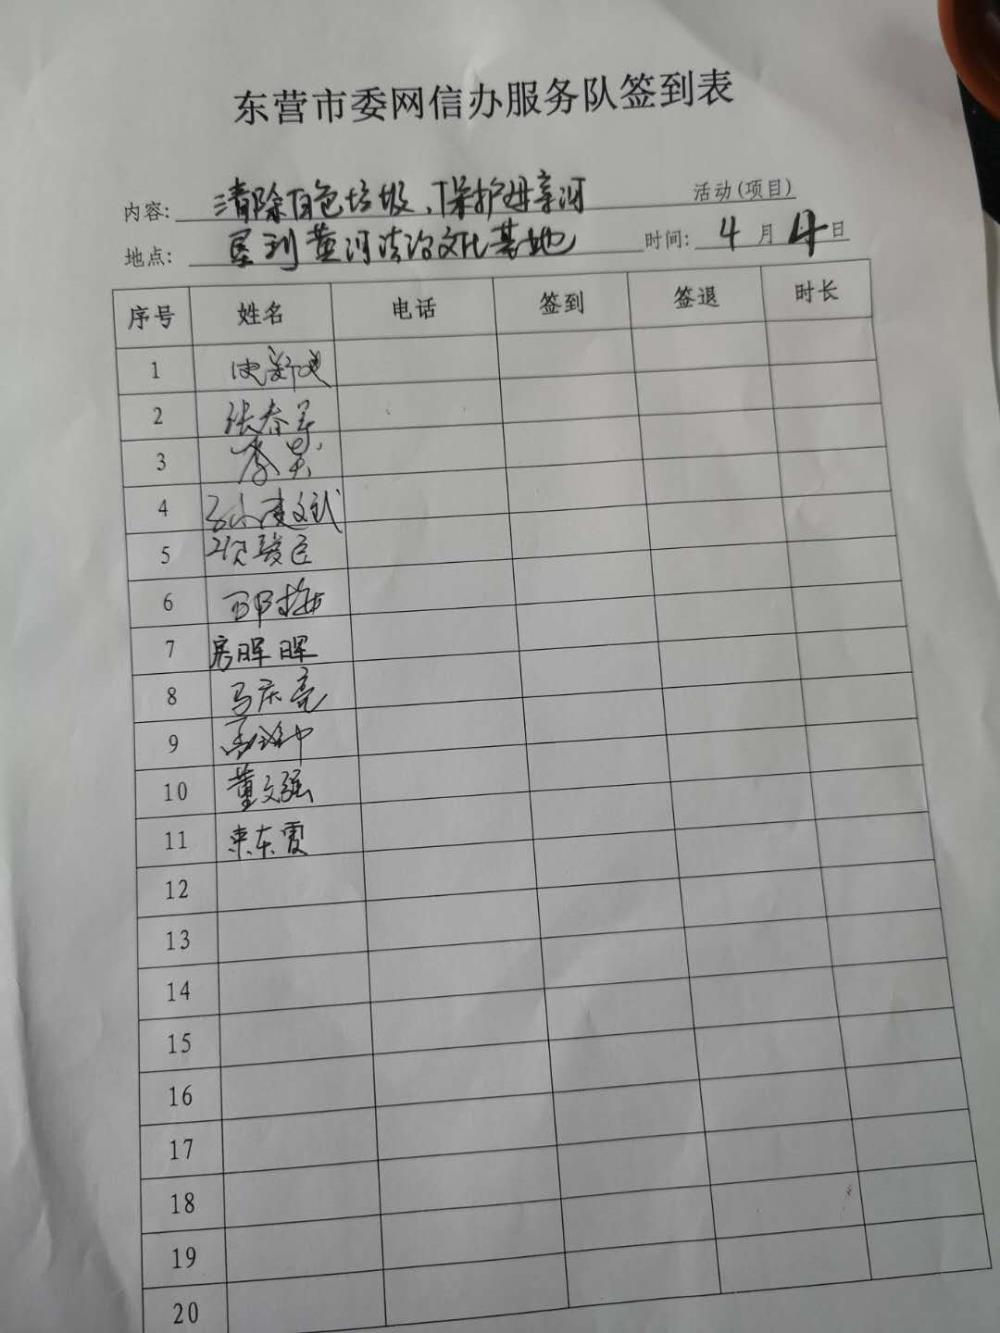 东营市委网信办服务队签到表
内容: 清除白色垃圾、保护母亲河 活动(项目)
地点: 垦利黄河法治文化基地 时间: 4月4日
序号 姓名 电话 签到 签退 时长
1
2 张春军
3 李昊
4
5
6 邵梅
7 房晖晖
8 马庆亮
9
10 董文强
11 来东霞
12
13
14
15
16
17
18
19
20